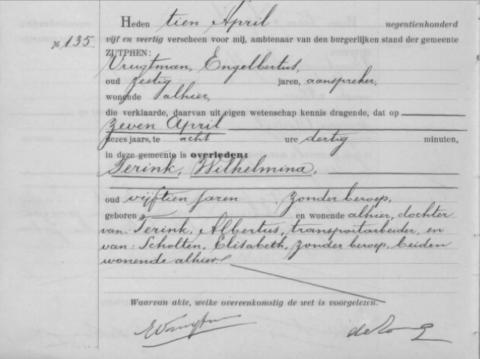 Heden tien April negentienhonderd
№ 135. vijf en veertig verscheen voor mij, ambtenaar van den burgerlijken stand der gemeente
ZUTPHEN:
Vrugtman, Engelbertus,
oud zestig jaren, aanspreker,
wonende alhier,
die verklaarde, daarvan uit eigen wetenschap kennis dragende, dat op
zeven April
dezes jaars, te acht ure dertig minuten,
in deze gemeente is overleden:
Terink, Wilhelmina,
oud vijftien jaren zonder beroep,
geboren en wonende alhier, dochter
van: Terink, Albertus, transportarbeider, en
van: Scholten, Elisabeth, zonder beroep, beiden
wonende alhier.
Waarvan akte, welke overeenkomstig de wet is voorgelezen.